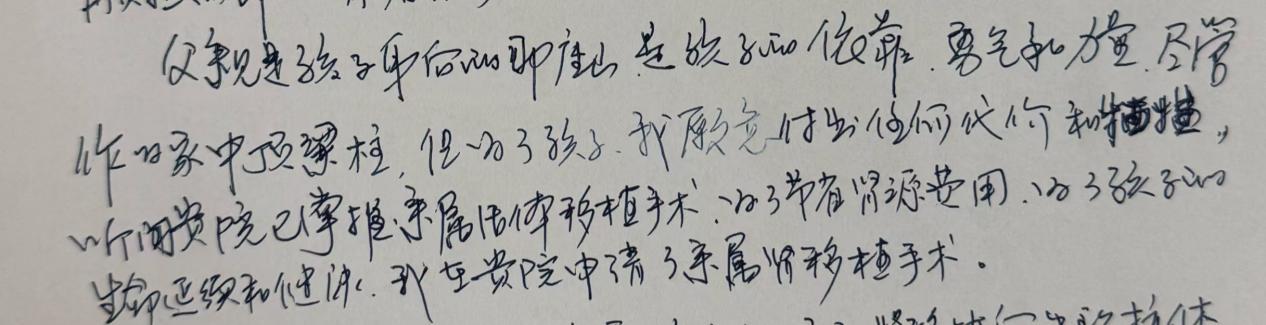 父亲是孩子身后的那座山,是孩子的依靠、勇气和力量,尽管
作为家中顶梁柱,但为了孩子,我愿意付出任何代价和牺牲,
听闻贵院已掌握亲属活体移植手术,为了节省肾源费用,为了孩子的
生命延续和健康,我在贵院申请了亲属肾移植手术。